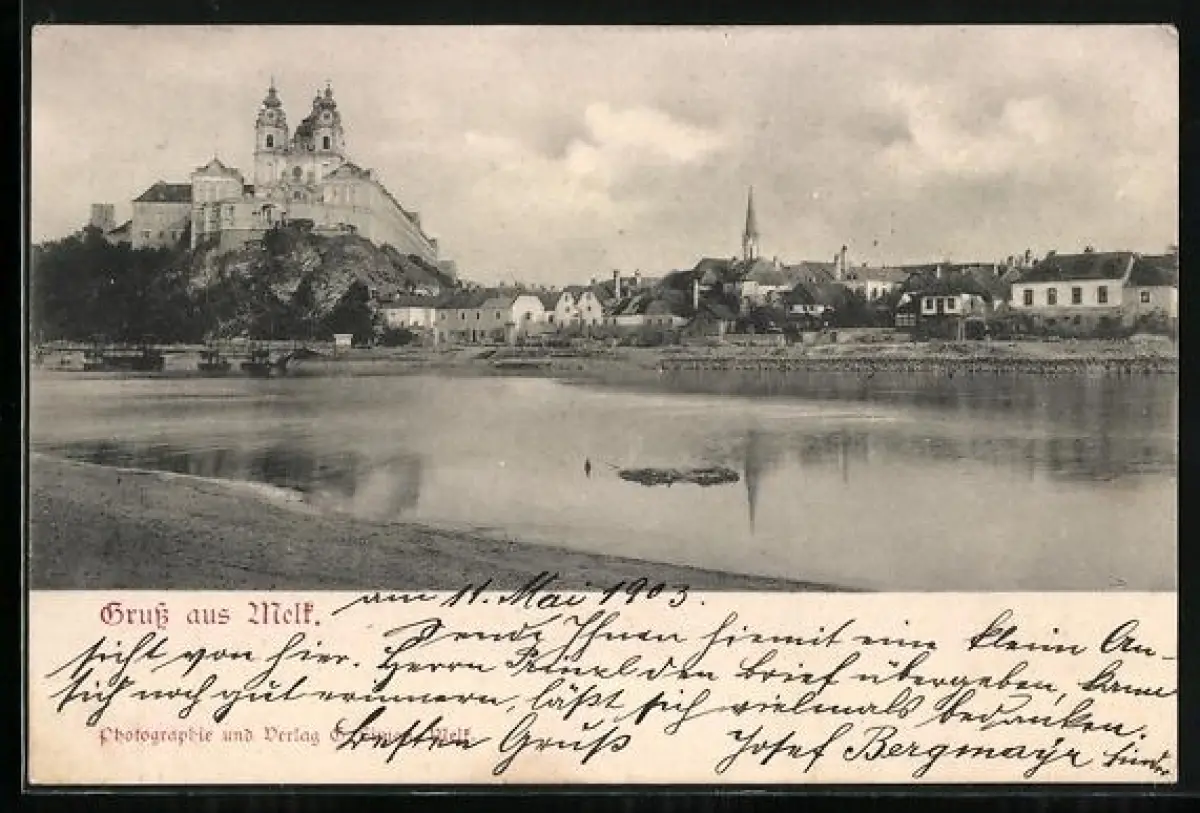 Gruß aus Melk.
am 11. Mai 1903.
Sende Ihnen hiemit eine klein An-
sicht von hier. Herrn den Brief übergeben, kann
sich noch gut erinnern, läßt sich vielmals bedanken.
Photographie und Verlag Melk.
Besten Gruß Josef Bergmayr